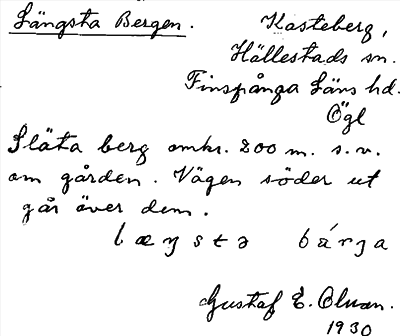 Längsta Bergen.
Kasteberg,
Hällestads sn.
Finspånga Läns hd.
Ögl
Släta berg omkr. 200 m. s.v.
om gården. Vägen söder ut
går över dem.
Gustaf E. Olsson.
1930